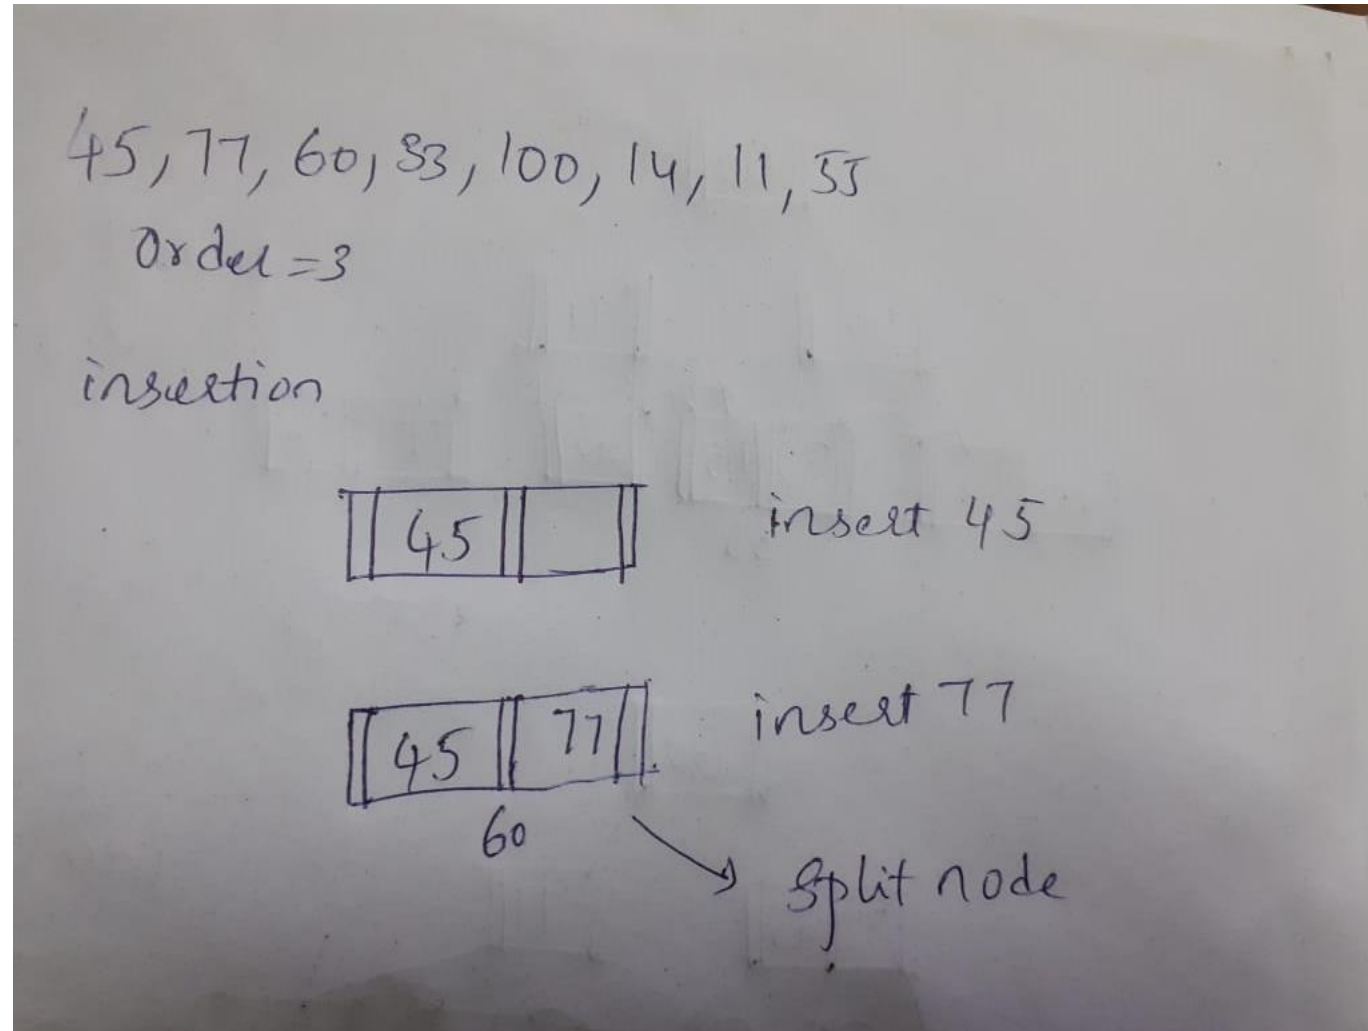 45, 77, 60, 33, 100, 14, 11, 55
Order = 3
insertion
45 insert 45
45 77 insert 77
60
Split node